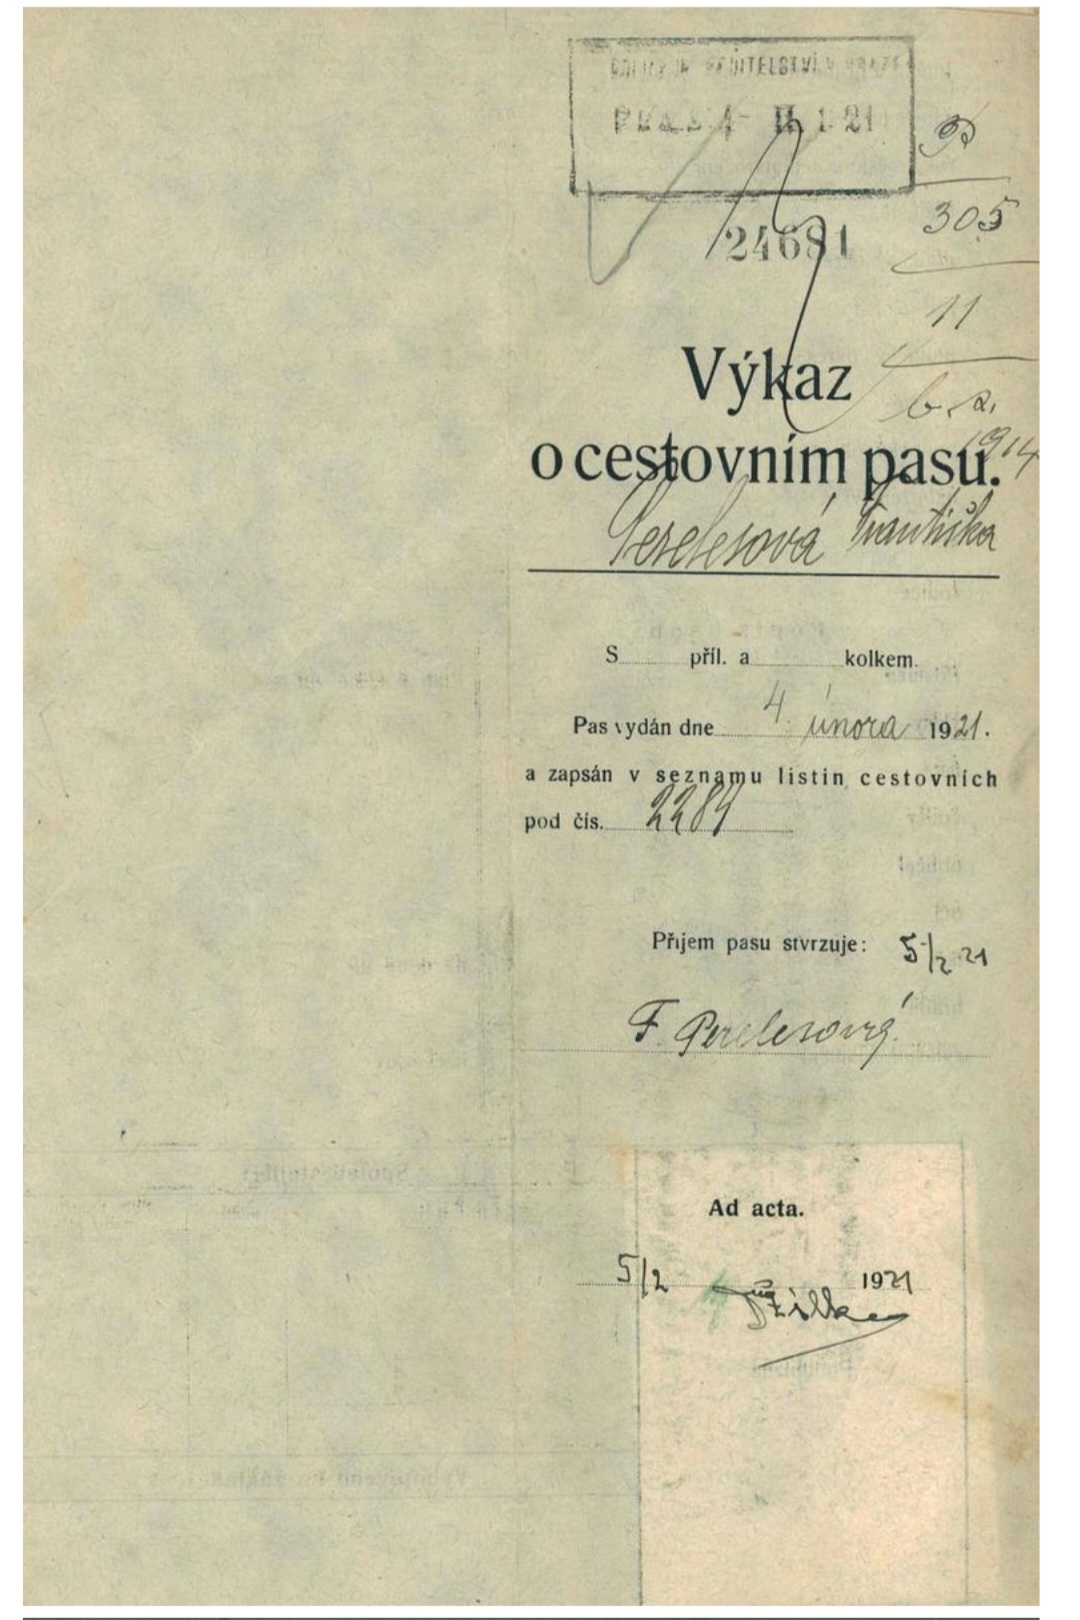 ŘEDITELSTVÍ V PRAZE
4 II. 1 21
24681
P
305
11
Výkaz
o cestovním pasu.
Perelesová Františka
S příl. a kolkem.
Pas vydán dne 4. února 1921.
a zapsán v seznamu listin cestovních
pod čís. 2284
Příjem pasu stvrzuje: 5/2 21
F. Perelesová
Ad acta.
5/2 1921